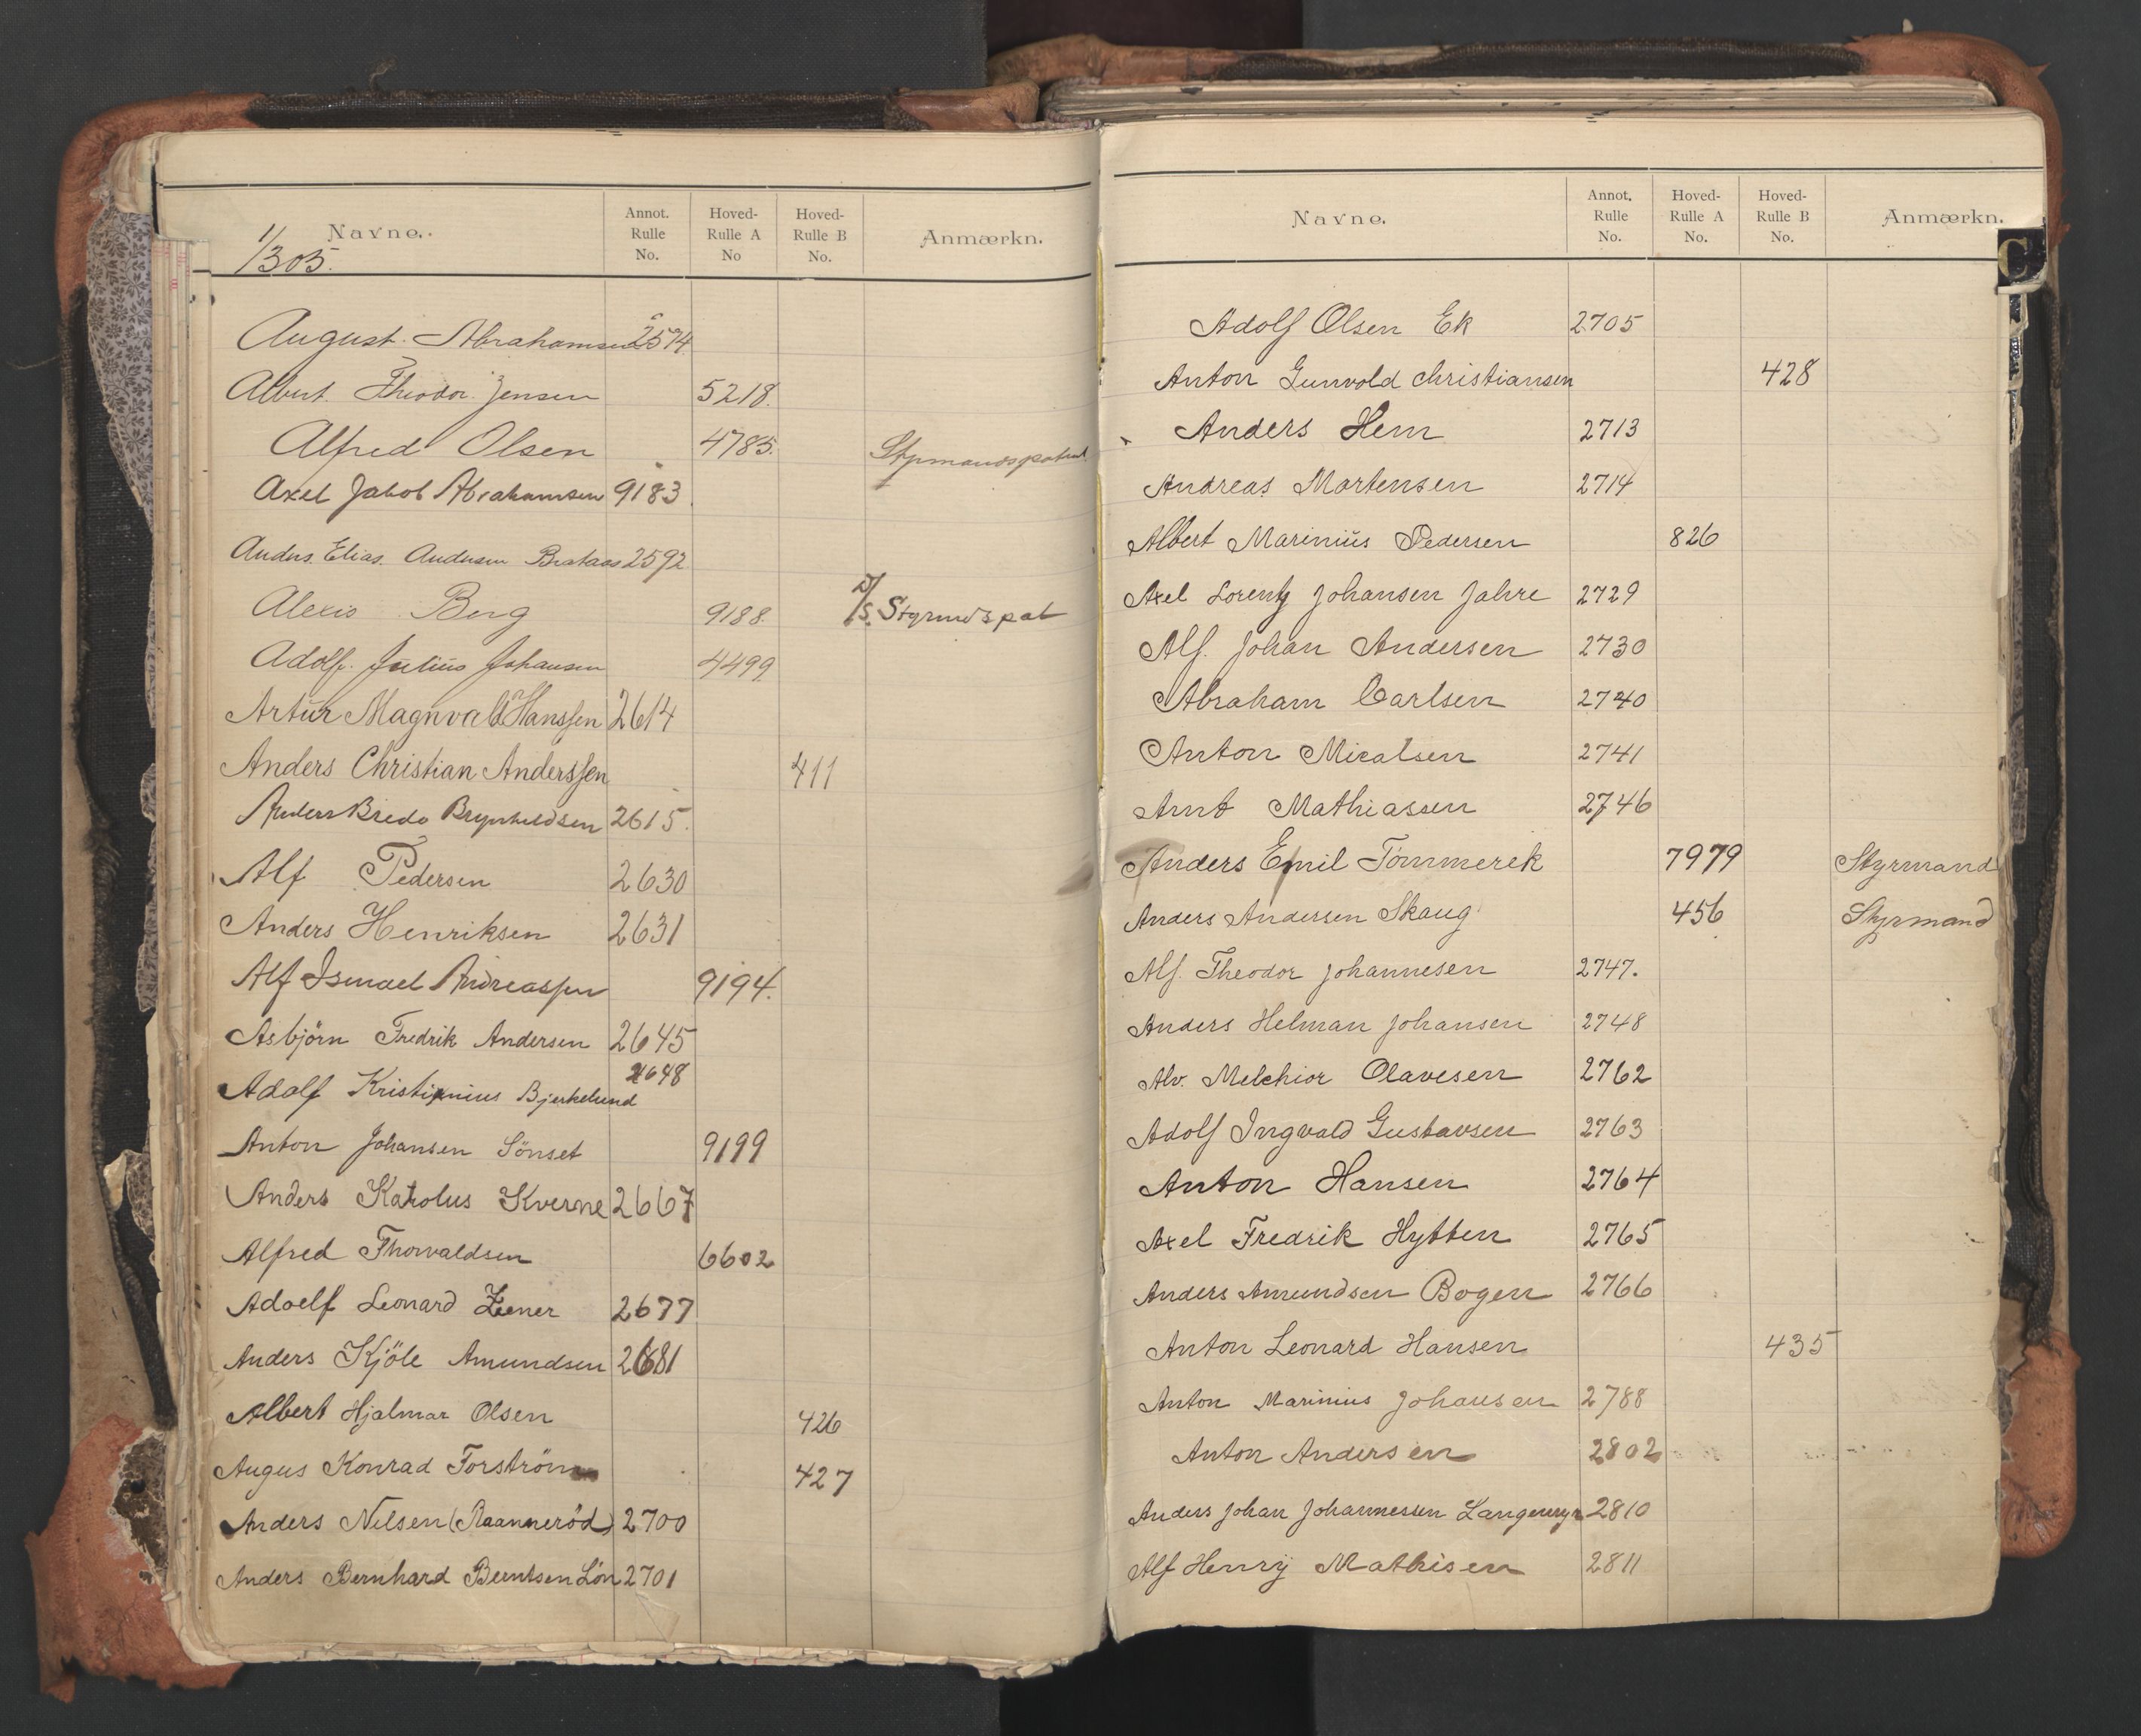 Navne. Annot. Rulle No. Hoved-Rulle A No Hoved-Rulle B No. Anmærkn.
1/305.
August. Abrahamsen 2574
Albert. Theodor. Jensen 5218.
Alfred Olsen 4785. Styrmandspatent.
Axel Jakob Abrahamsen 9183
Anders. Elias. Andersen Brataas 2592
Alexis Berg 9188. D/S. Styrmdspat
Adolf. Julius Johansen 4499
Artur Magnvald Hanssen 2614
Anders Christian Anderssen 411
Anders Bredo Brynhildsen 2615.
Alf Pedersen 2630
Anders Henriksen 2631
Alf Ismael Andreassen 9194.
Asbjörn Fredrik Andersen 2645
Adolf Kristianius Bjerkelund 2648
Anton Johansen Sönset 9199
Anders Karolus Kverne 2667
Alfred Thorvaldsen 6602
Adoelf Leonard Zener 2677
Anders Kjöle Amundsen 2681
Albert Hjalmar Olsen 426
Augus Konrad Forström 427
Anders Nilsen (Raanneröd) 2700
Anders Bernhard Berntsen Lön 2701
Navne. Annot. Rulle No. Hoved-Rulle A No. Hoved-Rulle B No. Anmærkn.
C
Adolf Olsen Ek 2705
Anton Gunvold Christiansen 428
Anders Hem 2713
Andreas Mortensen 2714
Albert Marinius Pedersen 826
Axel Lorentz Johansen Jahre 2729
Alf. Johan Andersen 2730
Abraham Carlsen 2740
Anton Micalsen 2741
Arnt Mathiassen 2746
Anders Emil Tömmerek 7979 Styrmand
Anders Andersen Skaug 456 Styrmand
Alf. Theodor Johannesen 2747.
Anders Helman Johansen 2748
Alv. Melchior Olavesen 2762
Adolf Ingvald Gustavsen 2763
Anton Hansen 2764
Axel Fredrik Hytten 2765
Anders Amundsen Bogen 2766
Anton Leonard Hansen 435
Anton Marinius Johansen 2788
Anton Andersen 2802
Anders Johan Johannessen Langemyr 2810
Alf Henrij Mathisen 2811